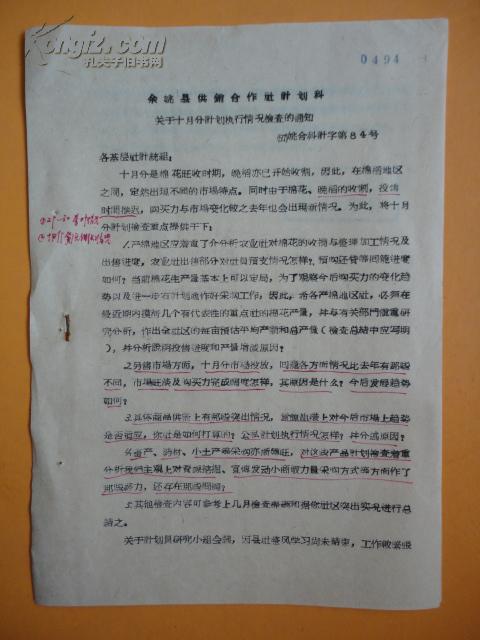 Kongfz.com
孔夫子旧书网
0494
余姚县供销合作社计划科
关于十月分计划执行情况检查的通知
姚合科计字第84号
各基层社计统组：
十月分是棉花旺收时期，晚稻亦已开始收割，因此，在棉稻地区
之间，定然出现不同的市场特点。同时由于棉花、晚稻的收割，投售
时间推迟，购买力与市场变化较之去年也会出现新情况。为此，将十月
分计划检查重点提供于下：
1.产棉地区应着重了介分析农业社对棉花的收摘与整理加工情况及
出售进度，农业社出售部分对社员预支情况怎样？预购还贷等问题进度
如何？当前棉花生产量基本上可以定局，为了观察今后购买力的变化趋
势以及进一步有计划地作好采购工作，因此，希各产棉地区社，必须在
最近期内摸清几个有代表性的重点社的棉花产量，并与有关部门慎重研
究分析，作出全社区的每亩预估平均产额和总产量（检查总结中应写明
），并分析原因投售进度和产量增减原因？
2.另售市场方面，十月分市场投放，回笼各方面情况比去年有那些
不同，市场旺淡及购买力完成调度怎样，其原因是什么？今后发展趋势
如何？
3.具体商品供应上有那些突出情况，货源组织上对今后市场上趋势
是否适应，你社是如何打算的？公共计划执行情况怎样？并分述原因？
4.畜产、药材、小土产等采购亦渐转旺，对这些产品计划检查着重
分析我们主观上对货源摸底、宣传发动小商贩力量采购方式等方面作了
那些努力，还存在那些问题？
5.其他检查内容可参考上几月检查提纲和据你社区突出实况进行总
结之。
关于计划员研究小组会议，因县社整风学习尚未结束，工作较紧张